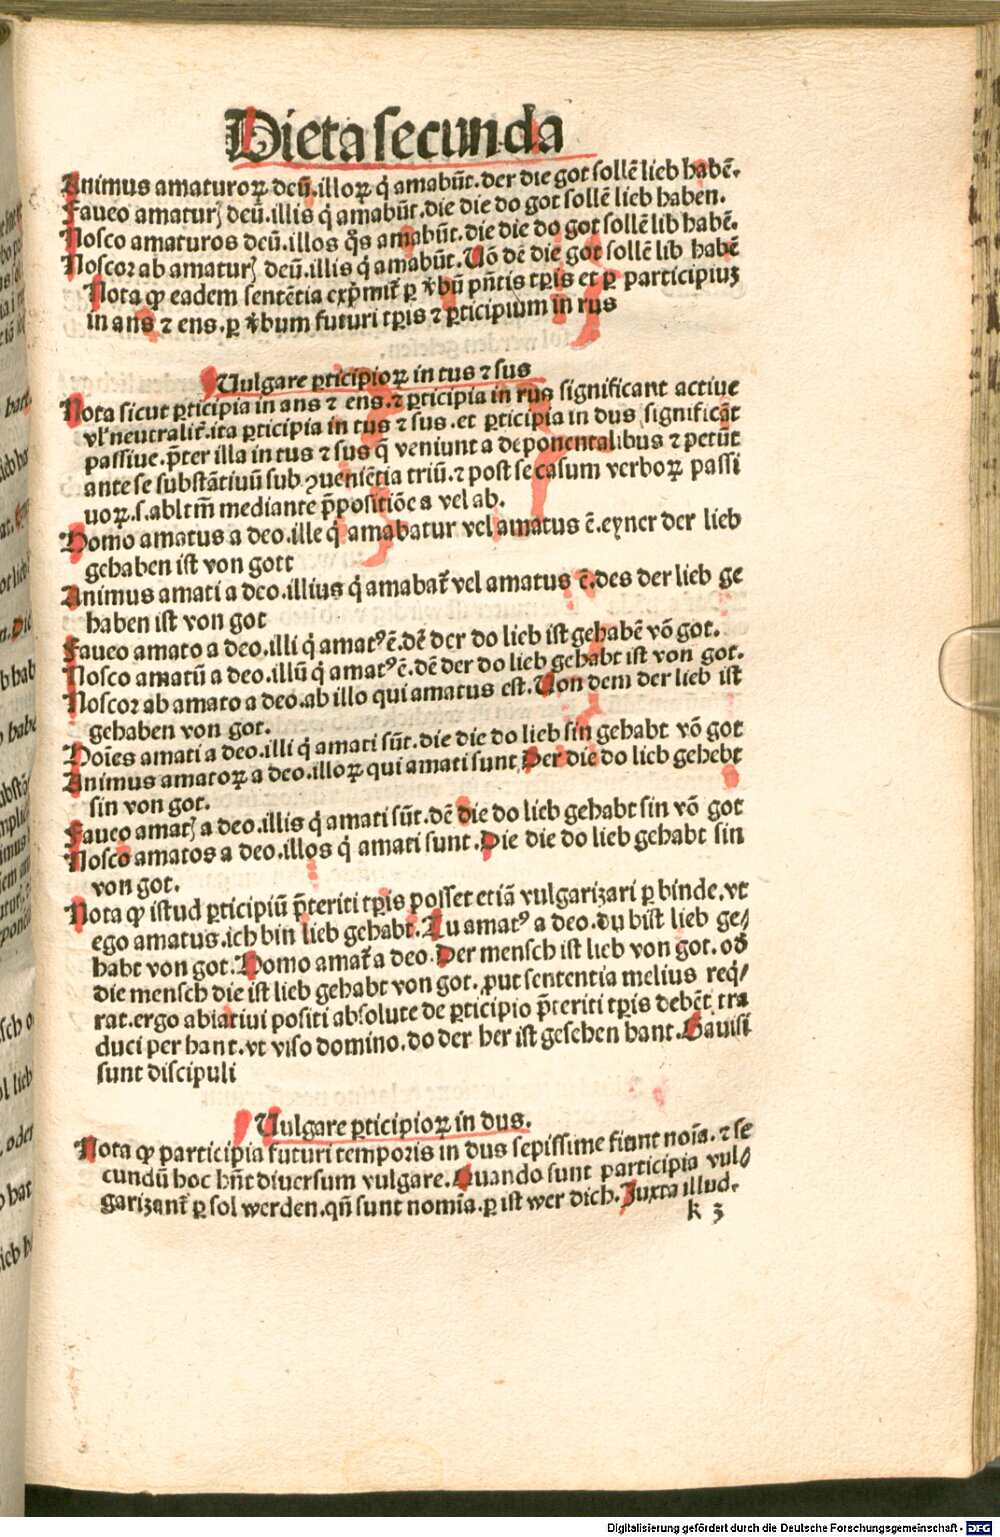 Dieta secunda
Animus amaturoꝝ deū.illoꝝ q̇ amabūt.der die got sollē lieb habē.
Faueo amaturꝭ deū.illis q̇ amabūt.die die do got sollē lieb haben.
Nosco amaturos deū.illos q̊s amabūt.die die do got sollē lib habē.
Noscor ab amaturꝭ deū.illis q̇ amabūt.Uō dē die got sollē lib habē
Nota ꝙ eadem sentētia exp̄mit᷑ ꝑ v̄bū pn̄tis tp̄is et ꝑ participiuꝫ
in ans ⁊ ens.ꝑ v̄bum futuri tp̄is ⁊ ꝑticipium in rus
Uulgare ꝑticipioꝝ in tus ⁊ sus
Nota sicut ꝑticipia in ans ⁊ ens.⁊ ꝑticipia in rus significant actiue
vl' neutralit᷑.ita ꝑticipia in tus ⁊ sus.et ꝑticipia in dus significāt
passiue.p̄ter illa in tus ⁊ sus q̄ veniunt a deponentalibus ⁊ petūt
ante se substātiuū sub ꝯueniētia triū.⁊ post se casum verboꝝ passi
uoꝝ.s.ablt̄m mediante p̄positiōe a vel ab.
Homo amatus a deo.ille q̇ amabatur vel amatus ē.eyner der lieb
gehaben ist von gott
Animus amati a deo.illius q̇ amabat᷑ vel amatus ē.des der lieb ge
haben ist von got
Faueo amato a deo.illi q̇ amatꝰ ē.dē der do lieb ist gehabē vō got.
Nosco amatū a deo.illū q̇ amatꝰ ē.dē der do lieb gehabt ist von got.
Noscor ab amato a deo.ab illo qui amatus est.Uon dem der lieb ist
gehaben von got.
Hoīes amati a deo.illi q̇ amati sūt.die die do lieb sin gehabt vō got
Animus amatoꝝ a deo.illoꝝ qui amati sunt Der die do lieb gehebt
sin von got.
Faueo amatꝭ a deo.illis q̇ amati sūt.dē die do lieb gehabt sin vō got
Nosco amatos a deo.illos q̇ amati sunt.Die die do lieb gehabt sin
von got.
Nota ꝙ istud ꝑticipiū p̄teriti tp̄is posset etiā vulgarizari ꝑ binde.vt
ego amatus.ich bin lieb gehabt.Tu amatꝰ a deo.du bist lieb ge⸗
habt von got.Homo amat᷑ a deo.Der mensch ist lieb von got.od̄
die mensch die ist lieb gehabt von got.ꝓut sententia melius req̇⸗
rat.ergo ablatiui positi absolute de ꝑticipio p̄teriti tp̄is debēt tra
duci per hant.vt viso domino.do der her ist gesehen hant.Gauisi
sunt discipuli
Uulgare ꝑticipioꝝ in dus.
Nota ꝙ participia futuri temporis in dus sepissime fiunt noīa.⁊ se
cundū hoc hn̄t diuersum vulgare.Quando sunt participia vul⸗
garizant᷑ ꝑ sol werden.qn̄ sunt nomīa.ꝑ ist wer dich.Juxta illud.
k 3
Digitalisierung gefördert durch die Deutsche Forschungsgemeinschaft - DFG